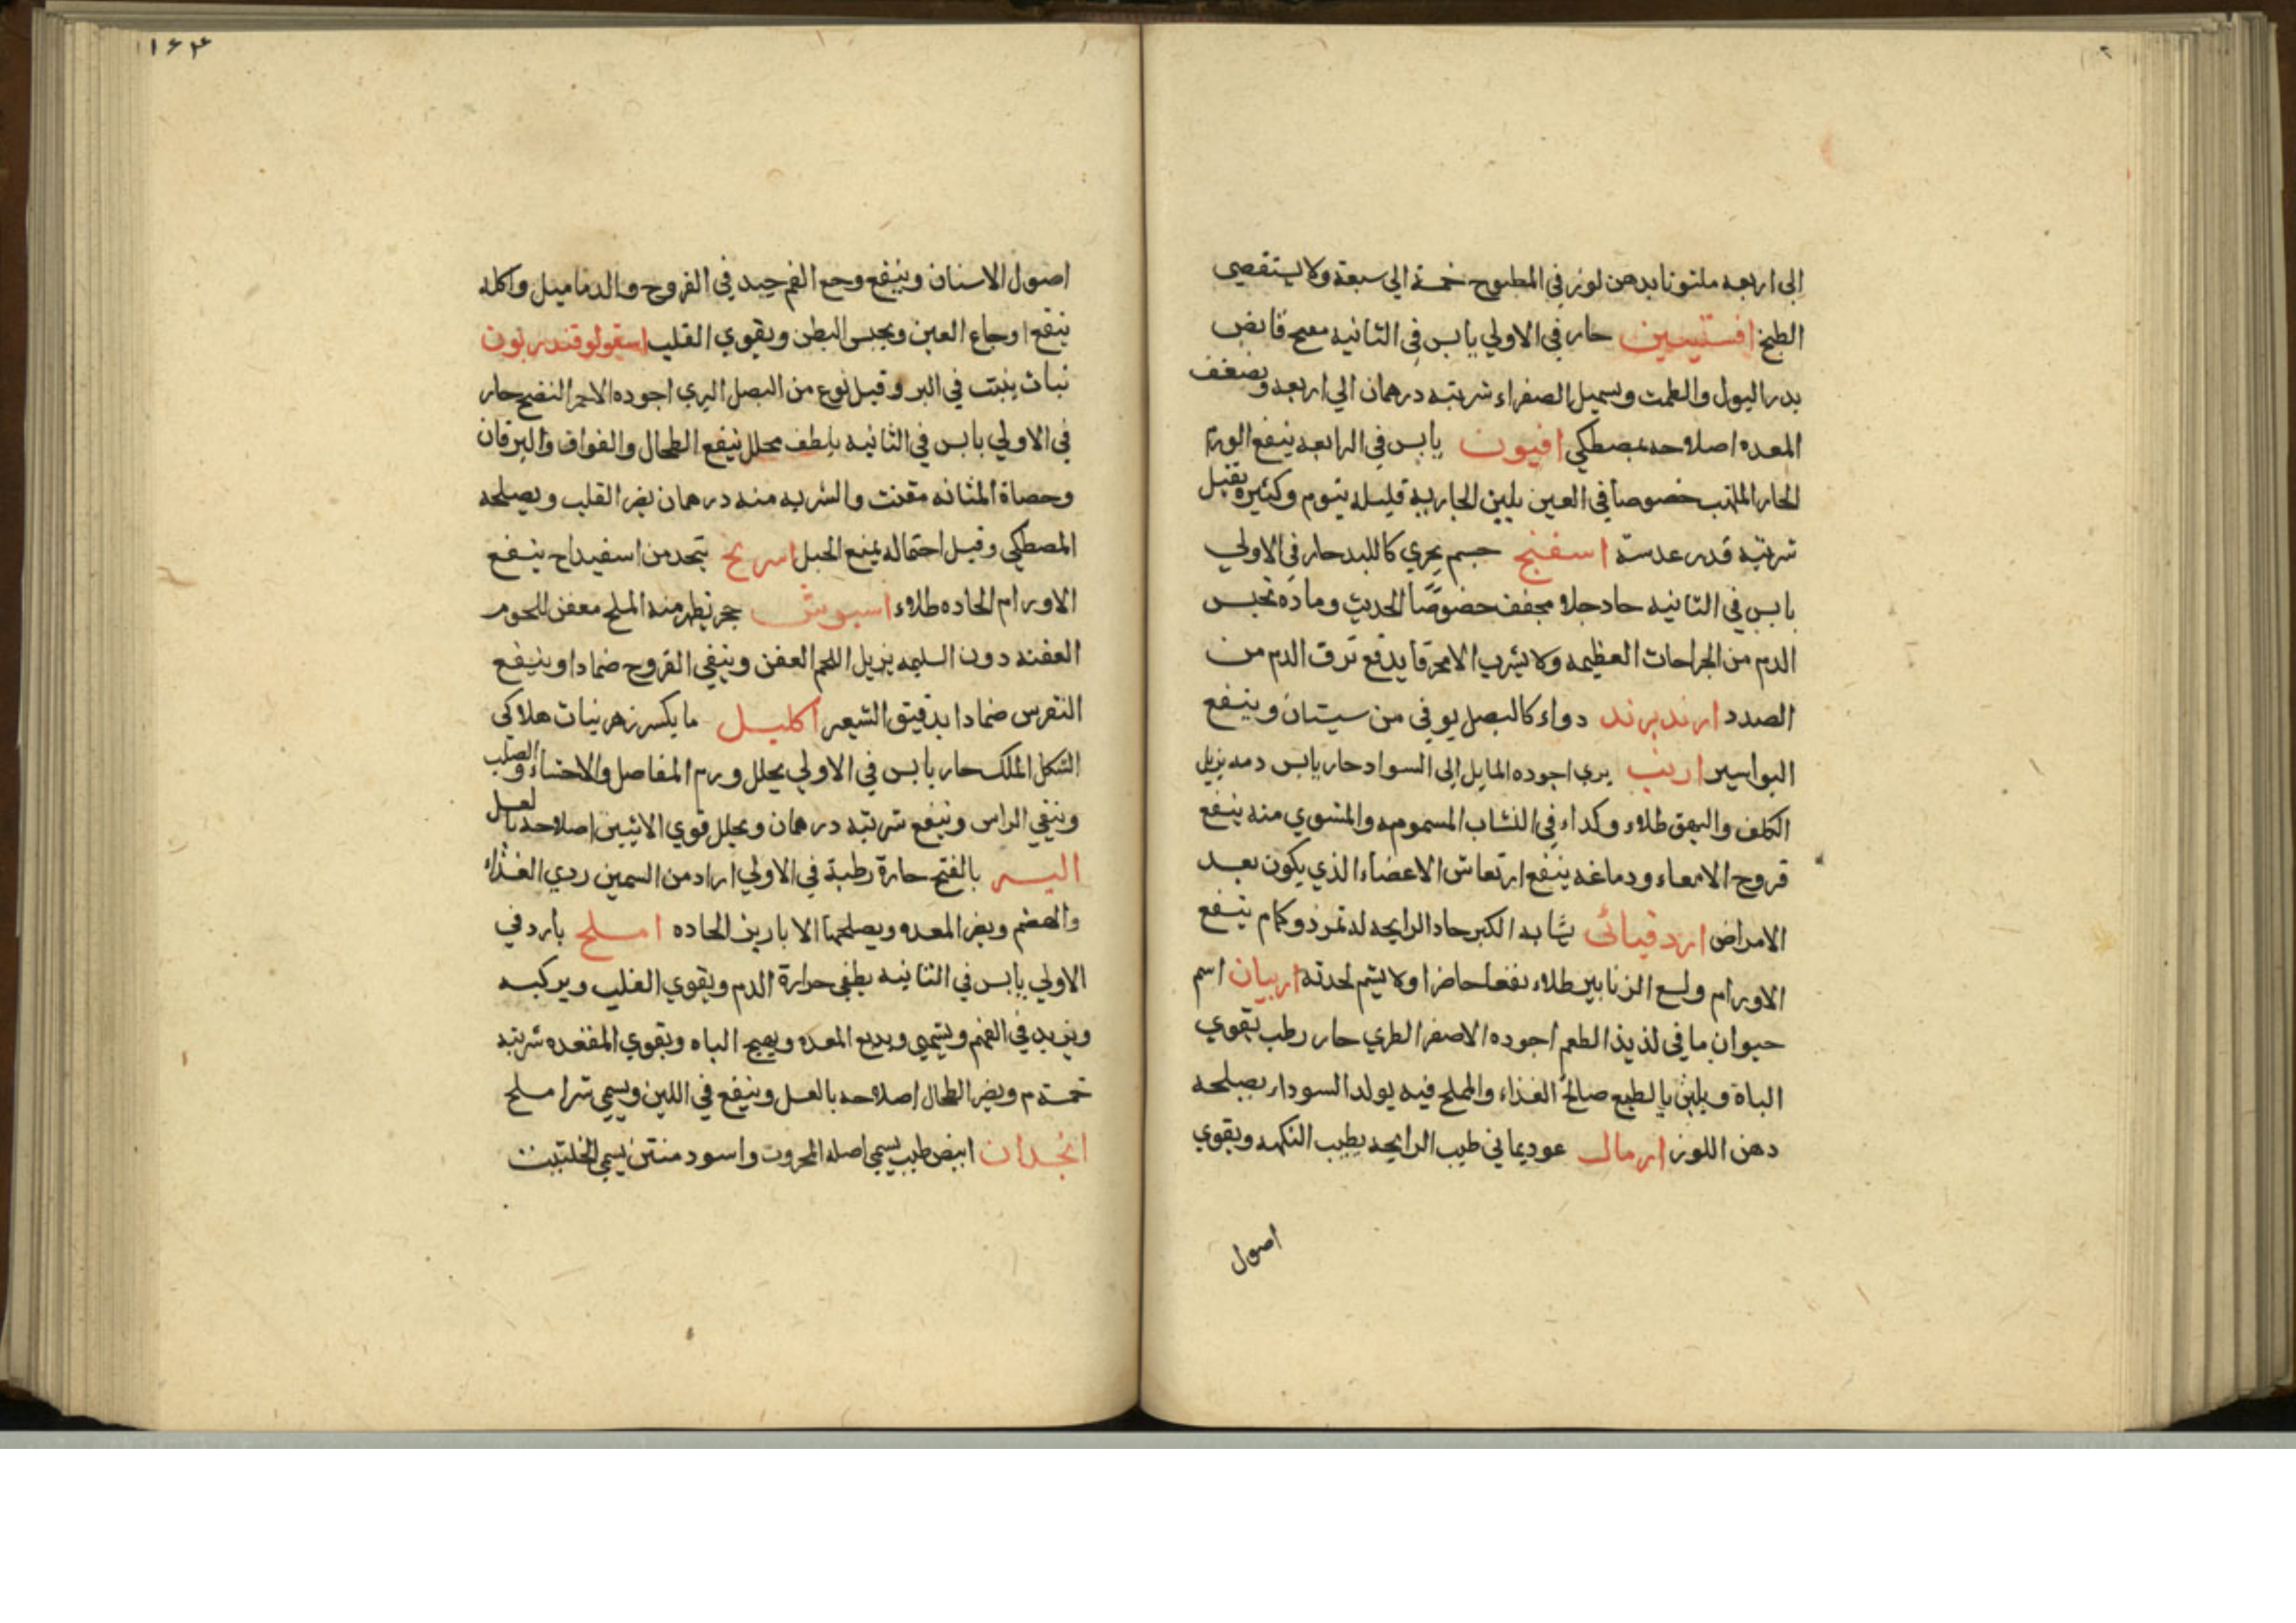 الى اربعه ملتوتا بدهن لوز في المطبوح خمسة الي سبعة ولا يستقصى
الطبخ افستيسين حار في الاولي يابس في الثانيه مفتح قابض
يدر البول والطمث ويسهيل الصفراء شربته درهمان الي اربعه ويضغف
المعده اصلاحه بمصطكي افيون يابس في الرابعه ينفع الورم
الحار الملتهب خصوصا في العين بلبن الجاريه قليله ينوم وكثيره يقتل
شربته قدر عدسة اسفنج جسم بحري كاللبد حار في الاولي
يابس في الثانيه حاد جلا مجفف خصوصًا الحديث وماده تحبس
الدم من الجراحات العظيمه ولا يشرب الا محرقا يدفع نزف الدم من
الصدد ارند برند دواء كالبصل يوفى من سيستان وينفع
البواسير ارنب بري اجوده المايل الى السواد حار يابس دمه يزيل
الكلف والبهق طلاء وكداء في النشاب المسمومه والمشوي منه ينفع
قروح الامعاء ودماغه ينفع ارتعاش الاعضاء الذي يكون بعد
الامراض اردقيائى يشابه الكبر حاد الرايحه له ثمر ذو كمام ينفع
الاورام ولسع الزنابير طلاء نفعا حاضرا ولا يشم لحدته اربيان اسم
حيوان مافى لذيذ الطعم اجوده الاصفر الطري حار رطب يقوي
الباة ويلين بالطبع صالح الغذاء والملح فيه يولد السودا يصلحه
دهن اللوز ارمال عود يماني طيب الرايحه يطيب النكهه ويقوي
اصول
١۶۴
اصول الاسنان وينفع وجع الفم جيد في القروح والدماميل واكله
ينفع اوجاع العين ويحبس البطن ويقوي القلب اسقولوقندريون
نبات ينبت في البر وقيل نوع من البصل البري اجوده الاحمر النضيج حار
في الاولي يابس في الثانيه يلطف محلل ينفع الطحال والفواق واليرقان
وحصاة المثانه مفنت والشربه منه درهمان يضر القلب ويصلحه
المصطكي وقيل احتماله يمنع الحبل اسرنج يتخد من اسفيداج ينفع
الاورام الحاده طلاء اسيوش حجر يظهر منه الملح معفن للحوم
العفنه دون السليمه يزيل اللحم العفن وينقي القروح ضمادا وينفع
النقرس ضمادا بدقيق الشعير اكليل ما يكسر زهر نبات هلاكى
الشكل الملك حار يابس في الاولي يحلل ورم المفاصل والاحشاء والصلب
وينقي الراس وينفع شربته درهمان ويحلل قوي الانثيين اصلاحه بالعسل
اليه بالفتح حارة رطبة في الاولي اراد من السمين ردي الغذاء
والهضم ويضر المعده ويصلحها الابازير الحاده املج بارد في
الاولي يابس في الثانيه يطفى حرارة الدم ويقوي القلب ويركبه
ويزيد في الفهم ويشهي ويدبغ المعده ويهيج الباه ويقوي المقعده شربته
خمسة م ويضر الطحال اصلاحه بالعسل وينفع في اللبن ويسمي شيرا ملح
انجدان ابيض طيب يسمي اصله المحروت واسود منتن يسمي الخلتيت